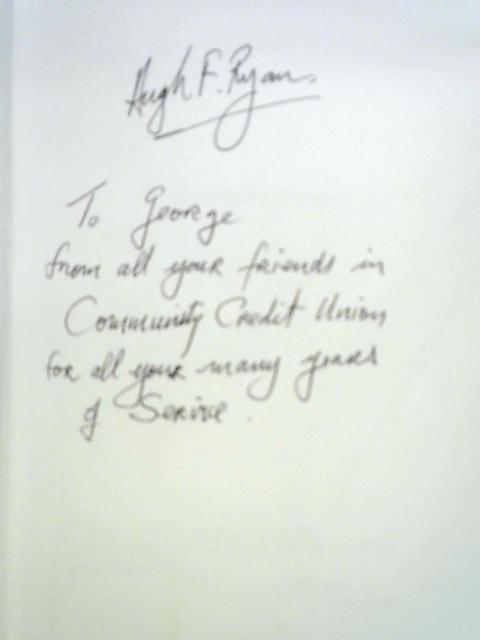 Hugh F. Ryan.
To George
from all your friends in
Community Credit Union
for all your many years
of Service.